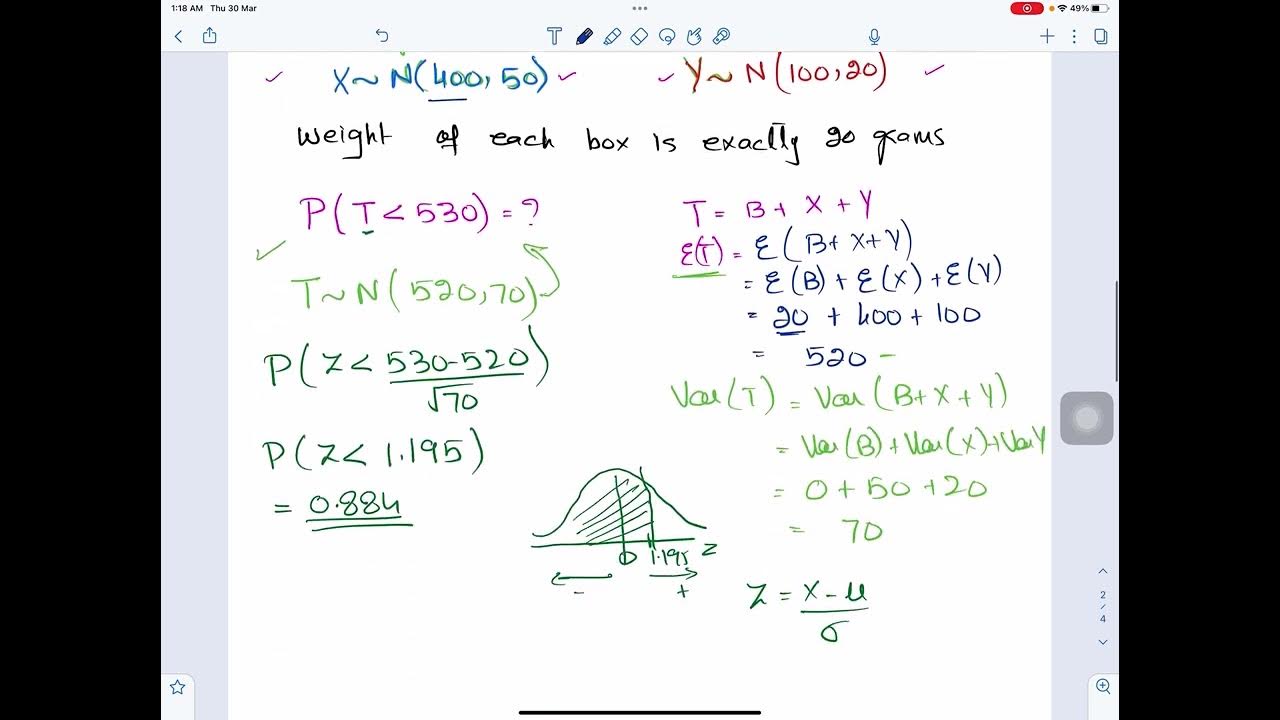 1:18 AM Thu 30 Mar
49%
X ~ N(400, 50)
Y ~ N(100, 20)
Weight of each box is exactly 20 grams
P(T < 530) = ?
T ~ N(520, 70)
P(Z < 530-520/√70)
P(Z < 1.195)
= 0.884
T = B + X + Y
E(T) = E(B + X + Y)
= E(B) + E(X) + E(Y)
= 20 + 400 + 100
= 520
Var(T) = Var(B + X + Y)
= Var(B) + Var(X) + Var Y
= 0 + 50 + 20
= 70
0 1.195 Z
- +
Z = X - μ / σ
2
/
4